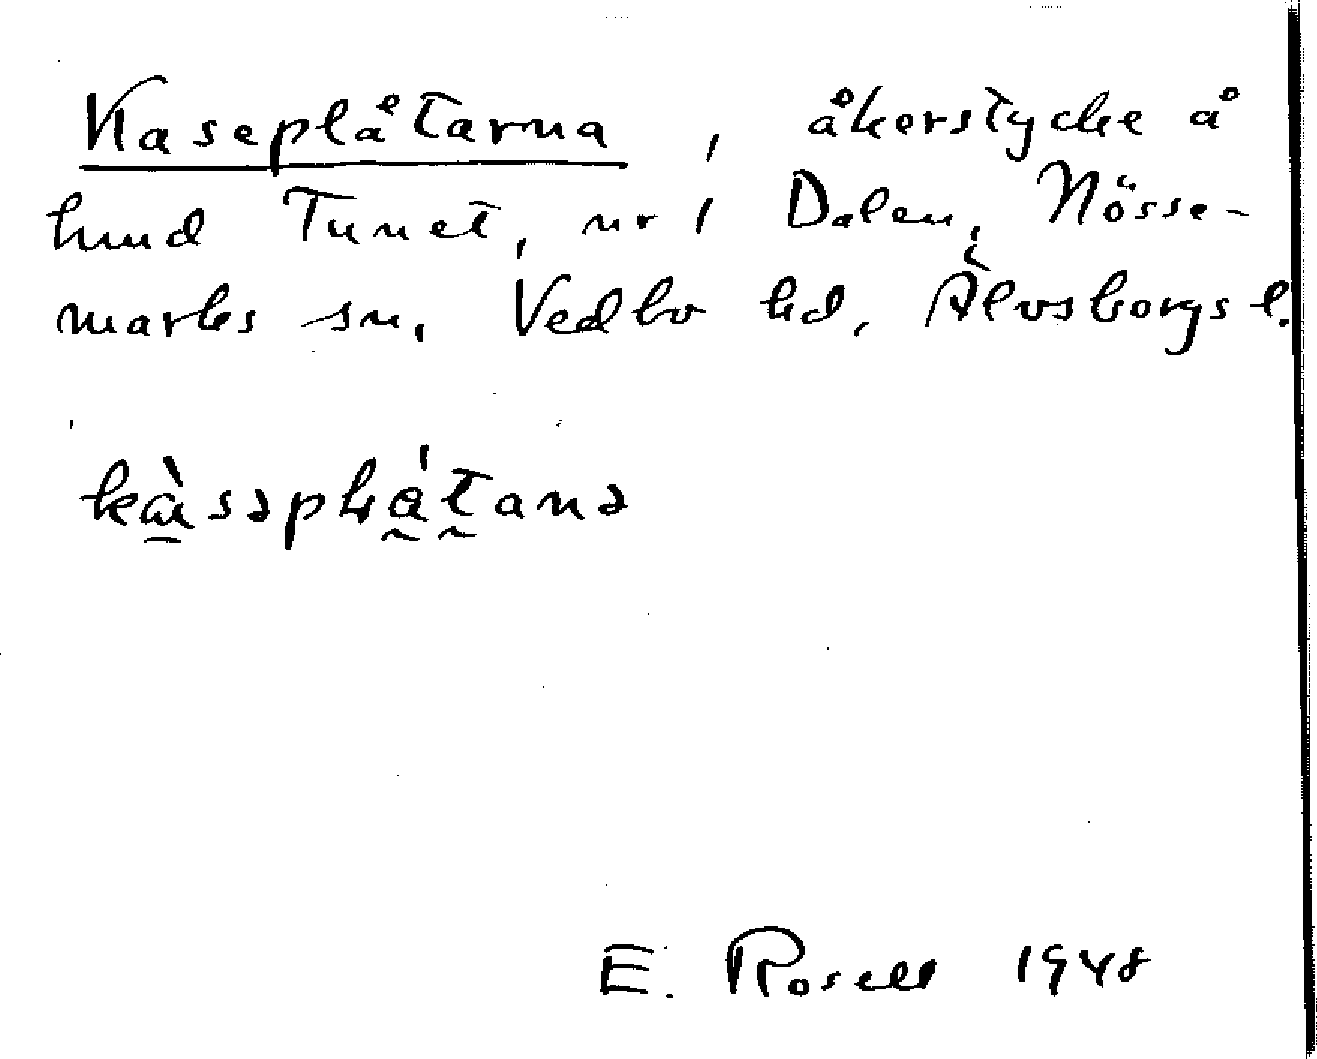 Kaseplåtarna, åkerstycke å
hmd Tunet, nr 1 Dalen, Nösse-
marks sn, Vedbo hd, Älvsborgs l.
E. Rosell 1948